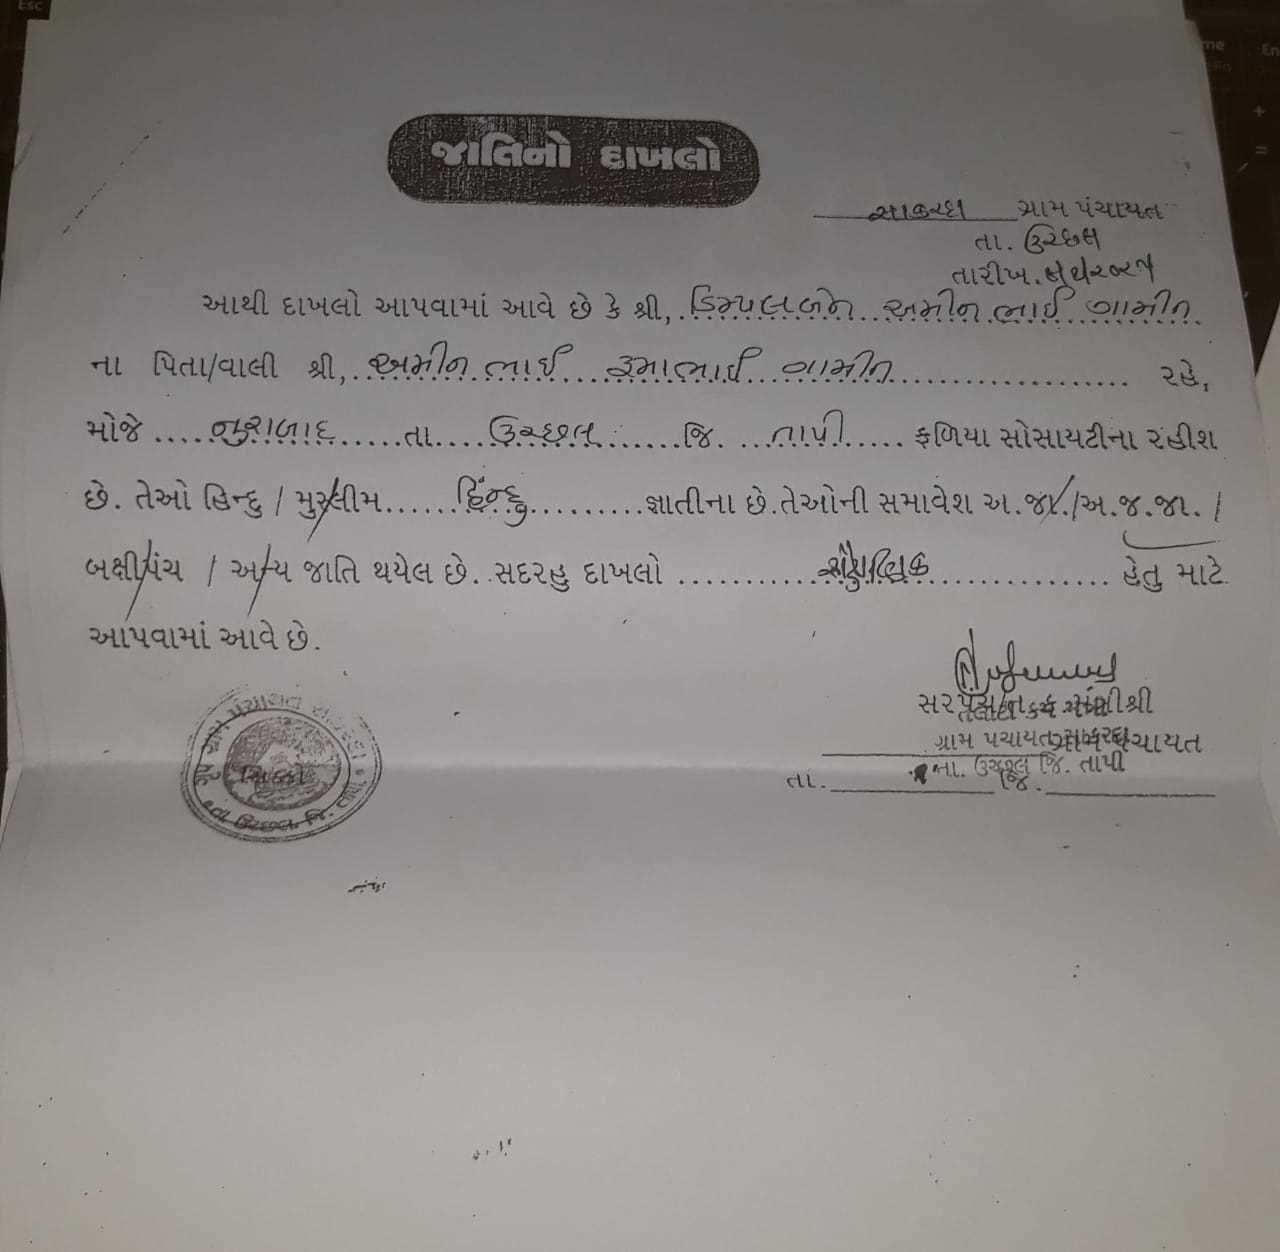 જાતિનો દાખલો
સાકરદા ગ્રામ પંચાયત
તા. ઉચ્છલ
તારીખ.
આથી દાખલો આપવામાં આવે છે કે શ્રી, ડિમ્પલબેન અમીનભાઈ ગામીત
ના પિતા/વાલી શ્રી, અમીનભાઈ રૂમાભાઈ ગામીત રહે,
મોજે નુરાબાદ તા. ઉચ્છલ જિ. તાપી ફળિયા સોસાયટીના રહીશ
છે. તેઓ હિન્દુ / મુસ્લીમ હિન્દુ જ્ઞાતીના છે. તેઓની સમાવેશ અ.જા./અ.જ.જા. /
બક્ષીપંચ / અન્ય જાતિ થયેલ છે. સદરહુ દાખલો હેતુ માટે
આપવામાં આવે છે.
ગ્રામ પંચાયત
તા. ઉચ્છલ જિ. તાપી
તા. જિ.
સિક્કો
તા. ઉચ્છલ, જિ. તાપી